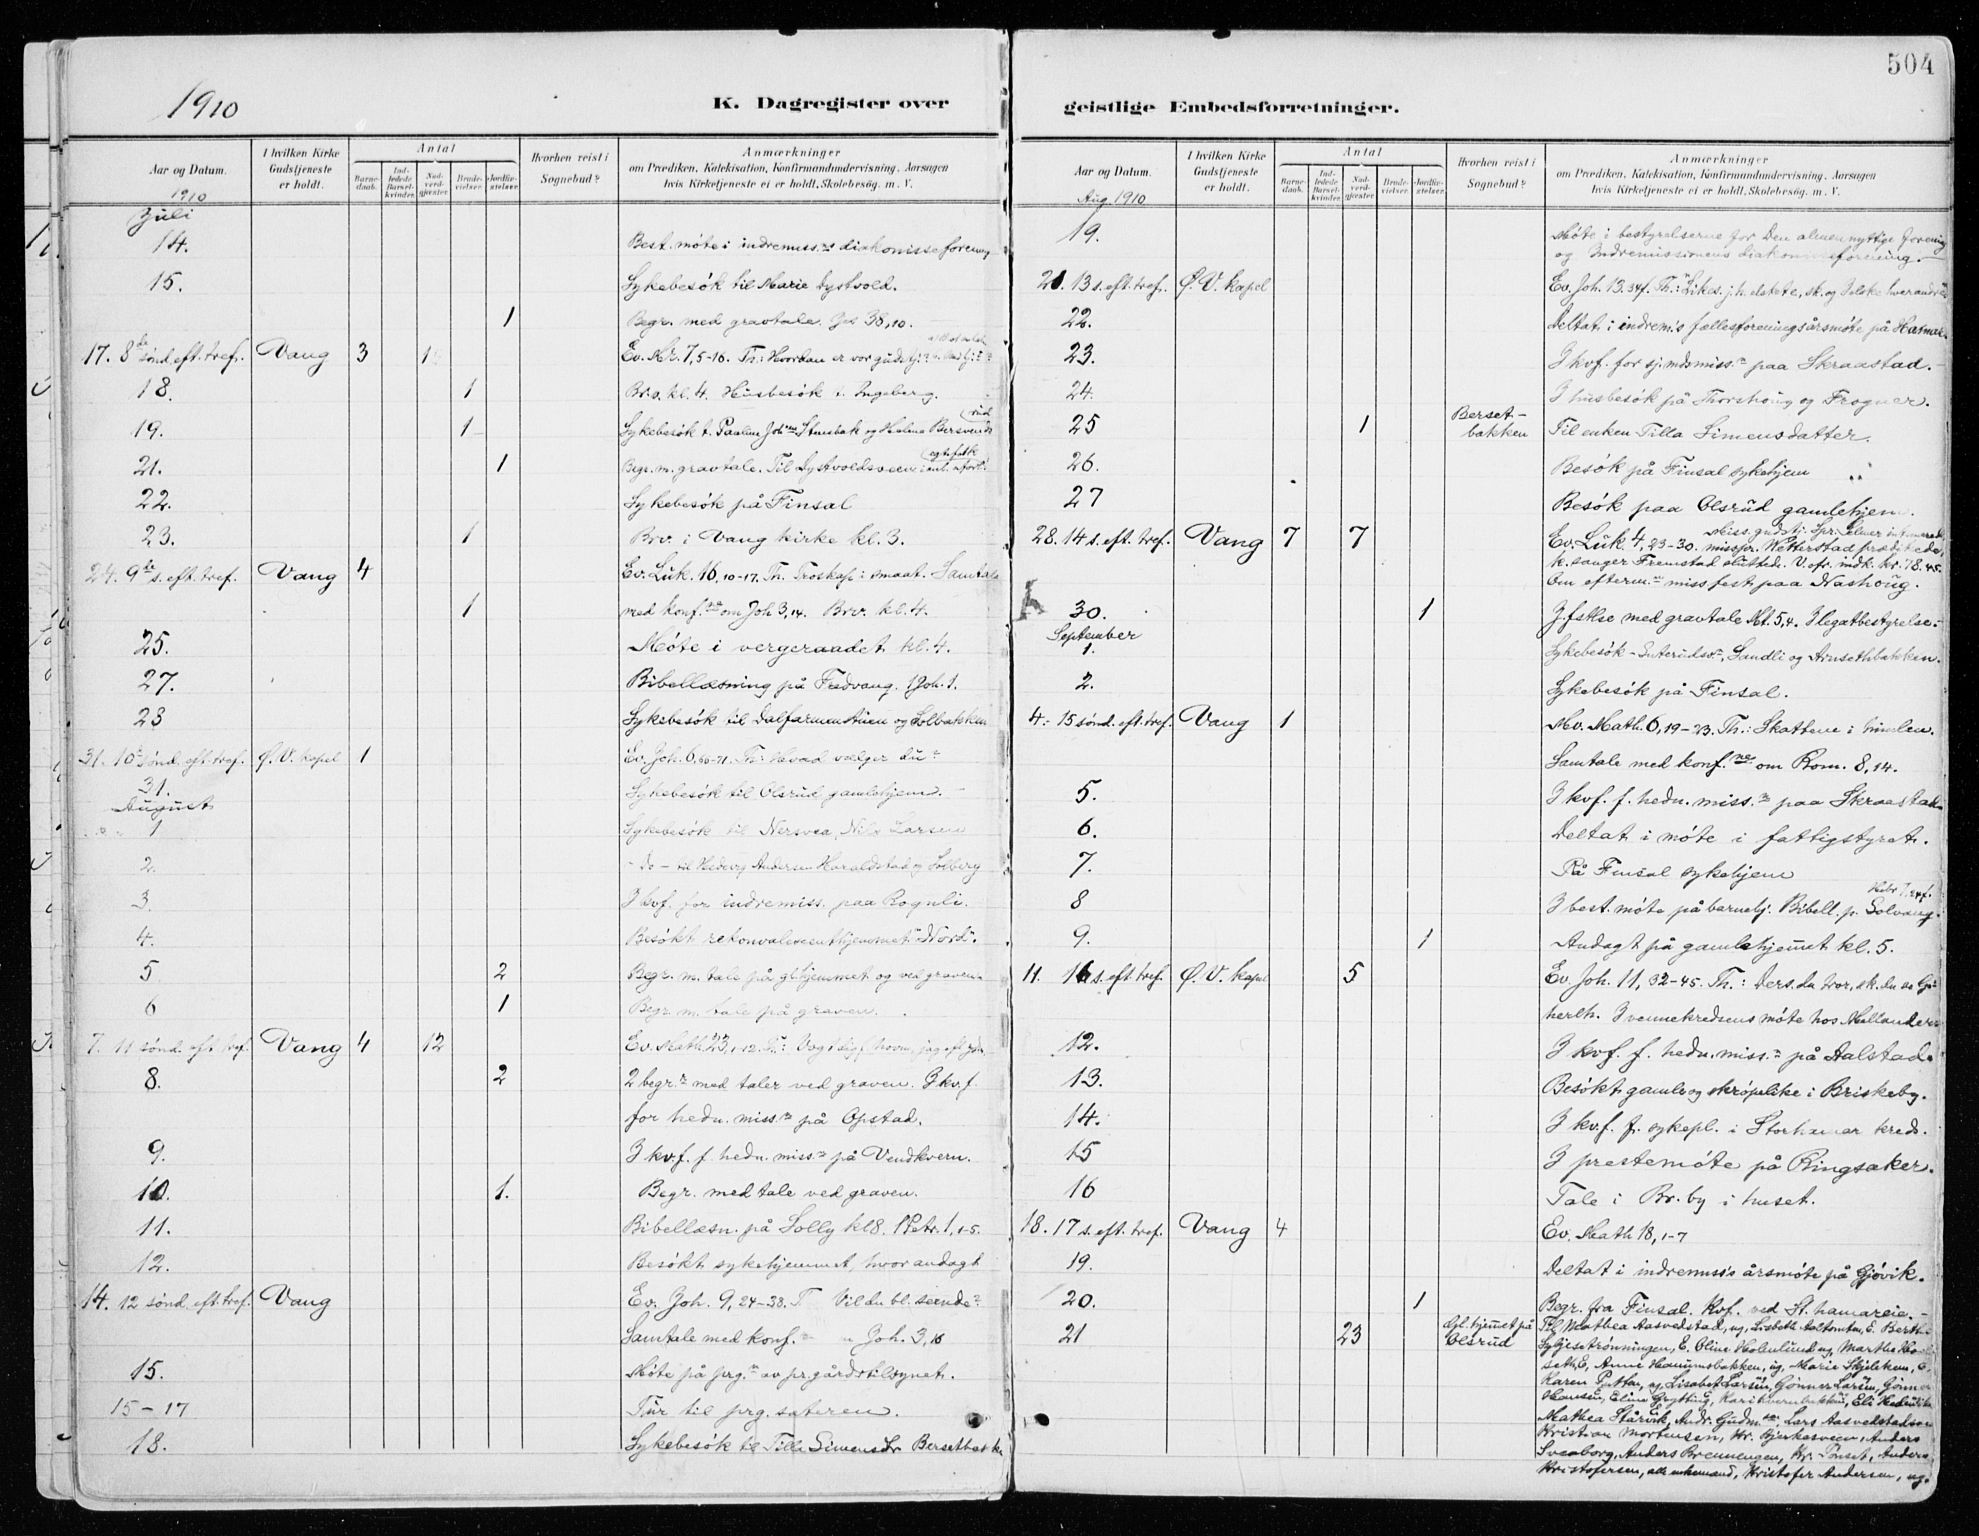 504
1910
K. Dagregister over
Aar og Datum.
I hvilken Kirke Gudstjeneste er holdt.
Antal
Barnedaab.
Indledede Barselkvinder.
Nadverdgjester.
Brudevielser.
Jordfæstelser.
Hvorhen reist i Sognebud?
Anmærkninger
om Prædiken, Katekisation, Konfirmandundervisning, Aarsagen
hvis Kirketjeneste ei er holdt, Skolebesög, m. V.
1910
Juli
14. Best. møte i indremiss.ns diakonisseforening
15. Sykebesök til Marie Dystvold.
1 Begr. med gravtale. Jes 38,10.
17. 8de sönd. eft. tref. Vang 3 Ev. Mr. 7,5-16. Th: Hvordan er vor gudstj?
18. 1 Brv. kl. 4. Husbesök t. Ingeberg.
19. 1 Sykebesök t. Pauline Johnsen Stensbak og Helma Bersvendsrud
21. 1 Begr. m. gravtale. Til Dystvoldsveen
22. Sykebesök på Finsal
23. 1 Brv. i Vang kirke kl. 3.
24. 9de s. eft. tref. Vang 4 Ev. Luk. 16,10-17. Th. Troskap i smaat. Samtale
1 med konf.ne om Joh 3,14. Brv. kl. 4.
25. Möte i vergeraadet kl. 4.
27. Bibellæsning på Fredvang. 1 Joh. 1.
28 Sykebesök til Dalfarmenstuen og Solbakken
31. 10de sönd. eft. tref. Ø. V. kapel 1 Ev. Joh. 6,66-71. Th: Hvad vælger du?
31. Sykebesök til Olsrud gamlehjem.
August
1 Sykebesök til Nersvea, Nils Larsen
2. - Do - til Hedevig Andersen Haraldstad og Solberg
3. I kvf. for indremiss. paa Rognli.
4. Besökt rekonvalescenthjemmet "Nord".
5 2 Begr. m. tale på gl. hjemmet og ved graven.
6 1 Begr. m. tale på graven.
7. 11 sönd. eft. tref. Vang 4 12 Ev. Math 23,1-12. Th:
8. 2 2 begr.r med taler ved graven. I kv. f.
for hedn. miss.n på Opstad.
9. I kv. f. f. hedn. miss.n på Vendkvern.
10. 1. Begr. med tale ved graven.
11. Bibellæsn. på Solly kl 8. 1 Petr. 1,1-5.
12. Besökt sykehjemmet, hvor andagt
14. 12 sönd. eft. tref. Vang Ev. Joh. 9,24-38. T Vil du bl. seende?
Samtale med konf. Joh. 3,16
15. Möte på prg. av pr.gårdstilsynet.
15-17 Tur til prg. sæteren.
18. Sykebesök til Tilla Simensdr Bersetbakk
geistlige Embedsforretninger.
Aar og Datum.
I hvilken Kirke Gudstjeneste er holdt.
Antal
Barnedaab.
Indledede Barselkvinder.
Nadverdgjester.
Brudevielser.
Jordfæstelser.
Hvorhen reist i Sognebud?
Anmærkninger
om Prædiken, Katekisation, Konfirmandundervisning, Aarsagen
hvis Kirketjeneste ei er holdt, Skolebesög, m. V.
Aug. 1910
19. Möte i bestyrelserne for Den almennyttige forening
og Indremissionens diakonisseforening.
21. 13 s. eft. tref. Ø. V. kapel Ev. Joh. 13.34f. Th.:
22. Deltat i indrem.s fællesforeningsårsmöte på Hamar.
23. I kvf. for sj.mdsmiss.n paa Skraastad.
24. I husbesök på Thorshoug og Frogner.
25 1 Bersetbakken Til enken Tilla Simensdatter.
26. Besök på Finsal sykehjem
27 Besök paa Olsrud gamlehjem.
28. 14 s. eft. tref. Vang 7 7 Ev. Luk. 4,23-30. misspr. Vetterstad prædikede,
k.sanger Fremstad sluttede. V. ofr. indk. kr. 78.45.
Om efterm.n missfest paa Nashoug.
30. 1 J.fstse med gravtale Mt. 5,4. I legatbestyrelse.
September
1. Sykebesök - Sandli og Arnsethbakken.
2. Sykebesök på Finsal.
4. 15 sönd. eft. tref. Vang 1 Ev. Math. 6,19-23. Th.: Skattene i himlen.
Samtale med konf.ne om Rom. 8,14.
5. I kvf. f. hedn. miss.n paa Skraastad
6. Deltat i möte i fattigstyret.
7. På Finsal sykehjem
8 I best. möte på barnehj. Bibell. p. Solvang. Hebr 7,24f.
9. 1 Andagt på gamlehjemmet kl. 5.
11. 16 s. eft. tref. Ø. V. kapel 5 Ev. Joh. 11, 32-45. Th.: Ders. du tror, sk. du se Gs
herlh. I vennekredsens möte hos Mellanders
12. I kvf. f. hedn. miss.n på Aalstad.
13. Besökt gamle og skröpelike i Briskeby.
14. I kv. f. f. sykepl. i Storhamar kreds.
15 I prestemöte på Ringsaker.
16 Tale i Br.by i huset.
18. 17 s. eft. tref. Vang 4 Ev. Math 18,1-7
19. Deltat i indremiss's årsmöte på Gjövik.
20. 1 Begr. fra Finsal. Kvf. ved St.hamareie.
21 23 Gl.hjemmet på Olsrud Til Mathea Aasvedstad, ug, Lisbeth Aaltomten, E. Berthe
Syljesetrønningen, E. Oline Holmlund, ug, Marthe
seth, E, Anne Hanumsbakken, ug, Marie Skjelken, E.
Karen Putten, ug, Lisabet Larsen, Gönner Larsen, Gönner
Hansen, Eline Grytting, Kari Kvernbakken, Eli
Mathea Stårvik, Andr. Gudm.sen, Lars Aasvedstad
Kristian Mortensen, Kr. Bjerkesveen, Anders
Sveaborg, Anders Brennengen, Kr. Tönset, Anders
Kristofersen, alle enkemænd, Kristofer Andersen, ug.